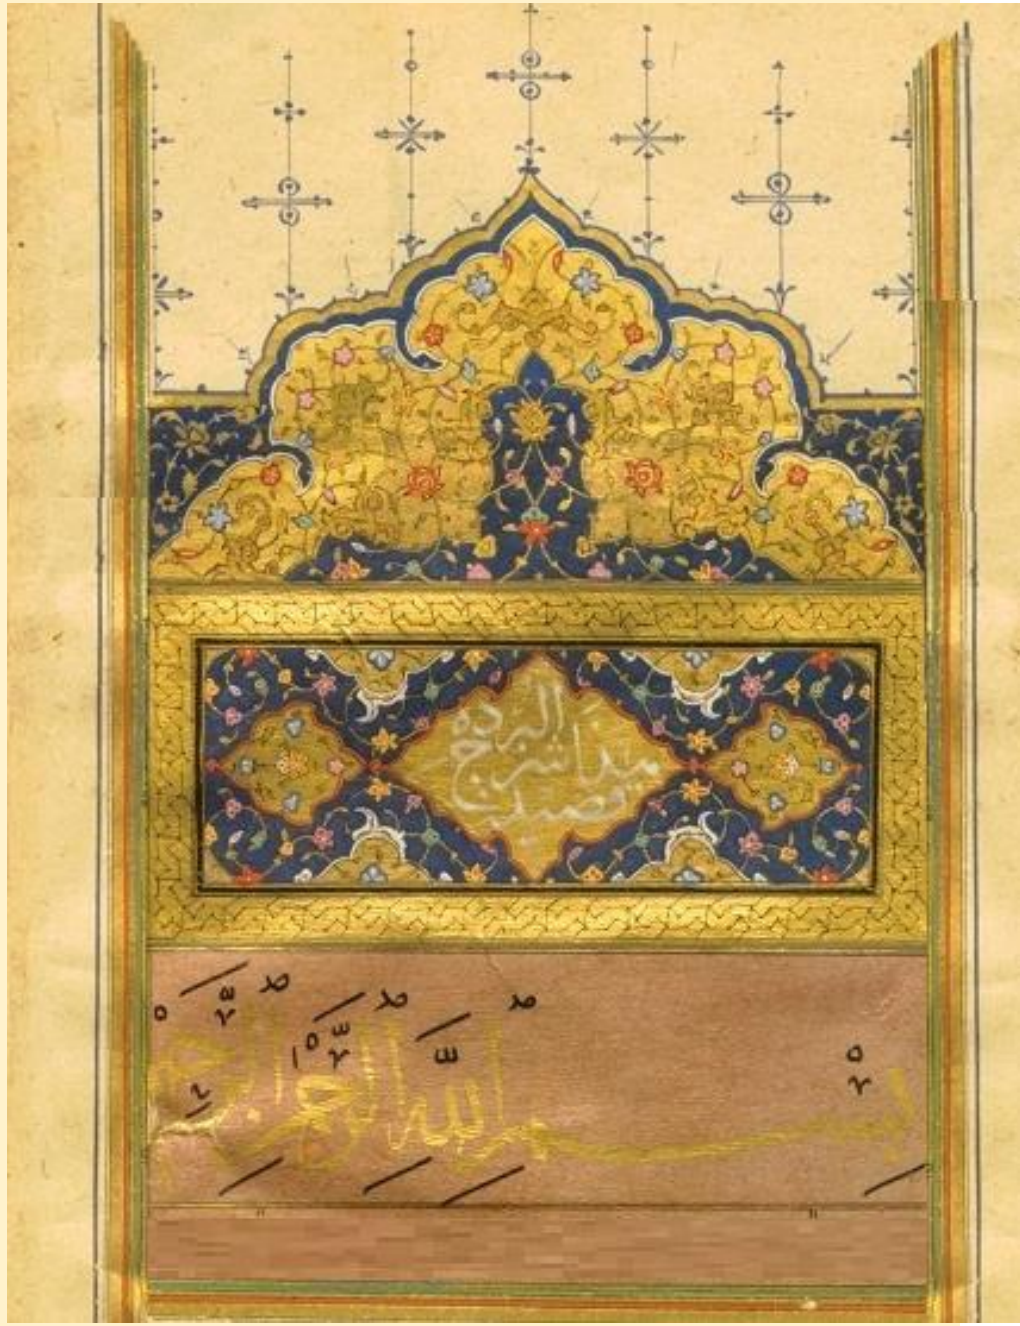 هذا شرح قصيدة البرده
بِسْــــمِ اللَّهِ الرَّحْمٰنِ الرَّحِيمِ